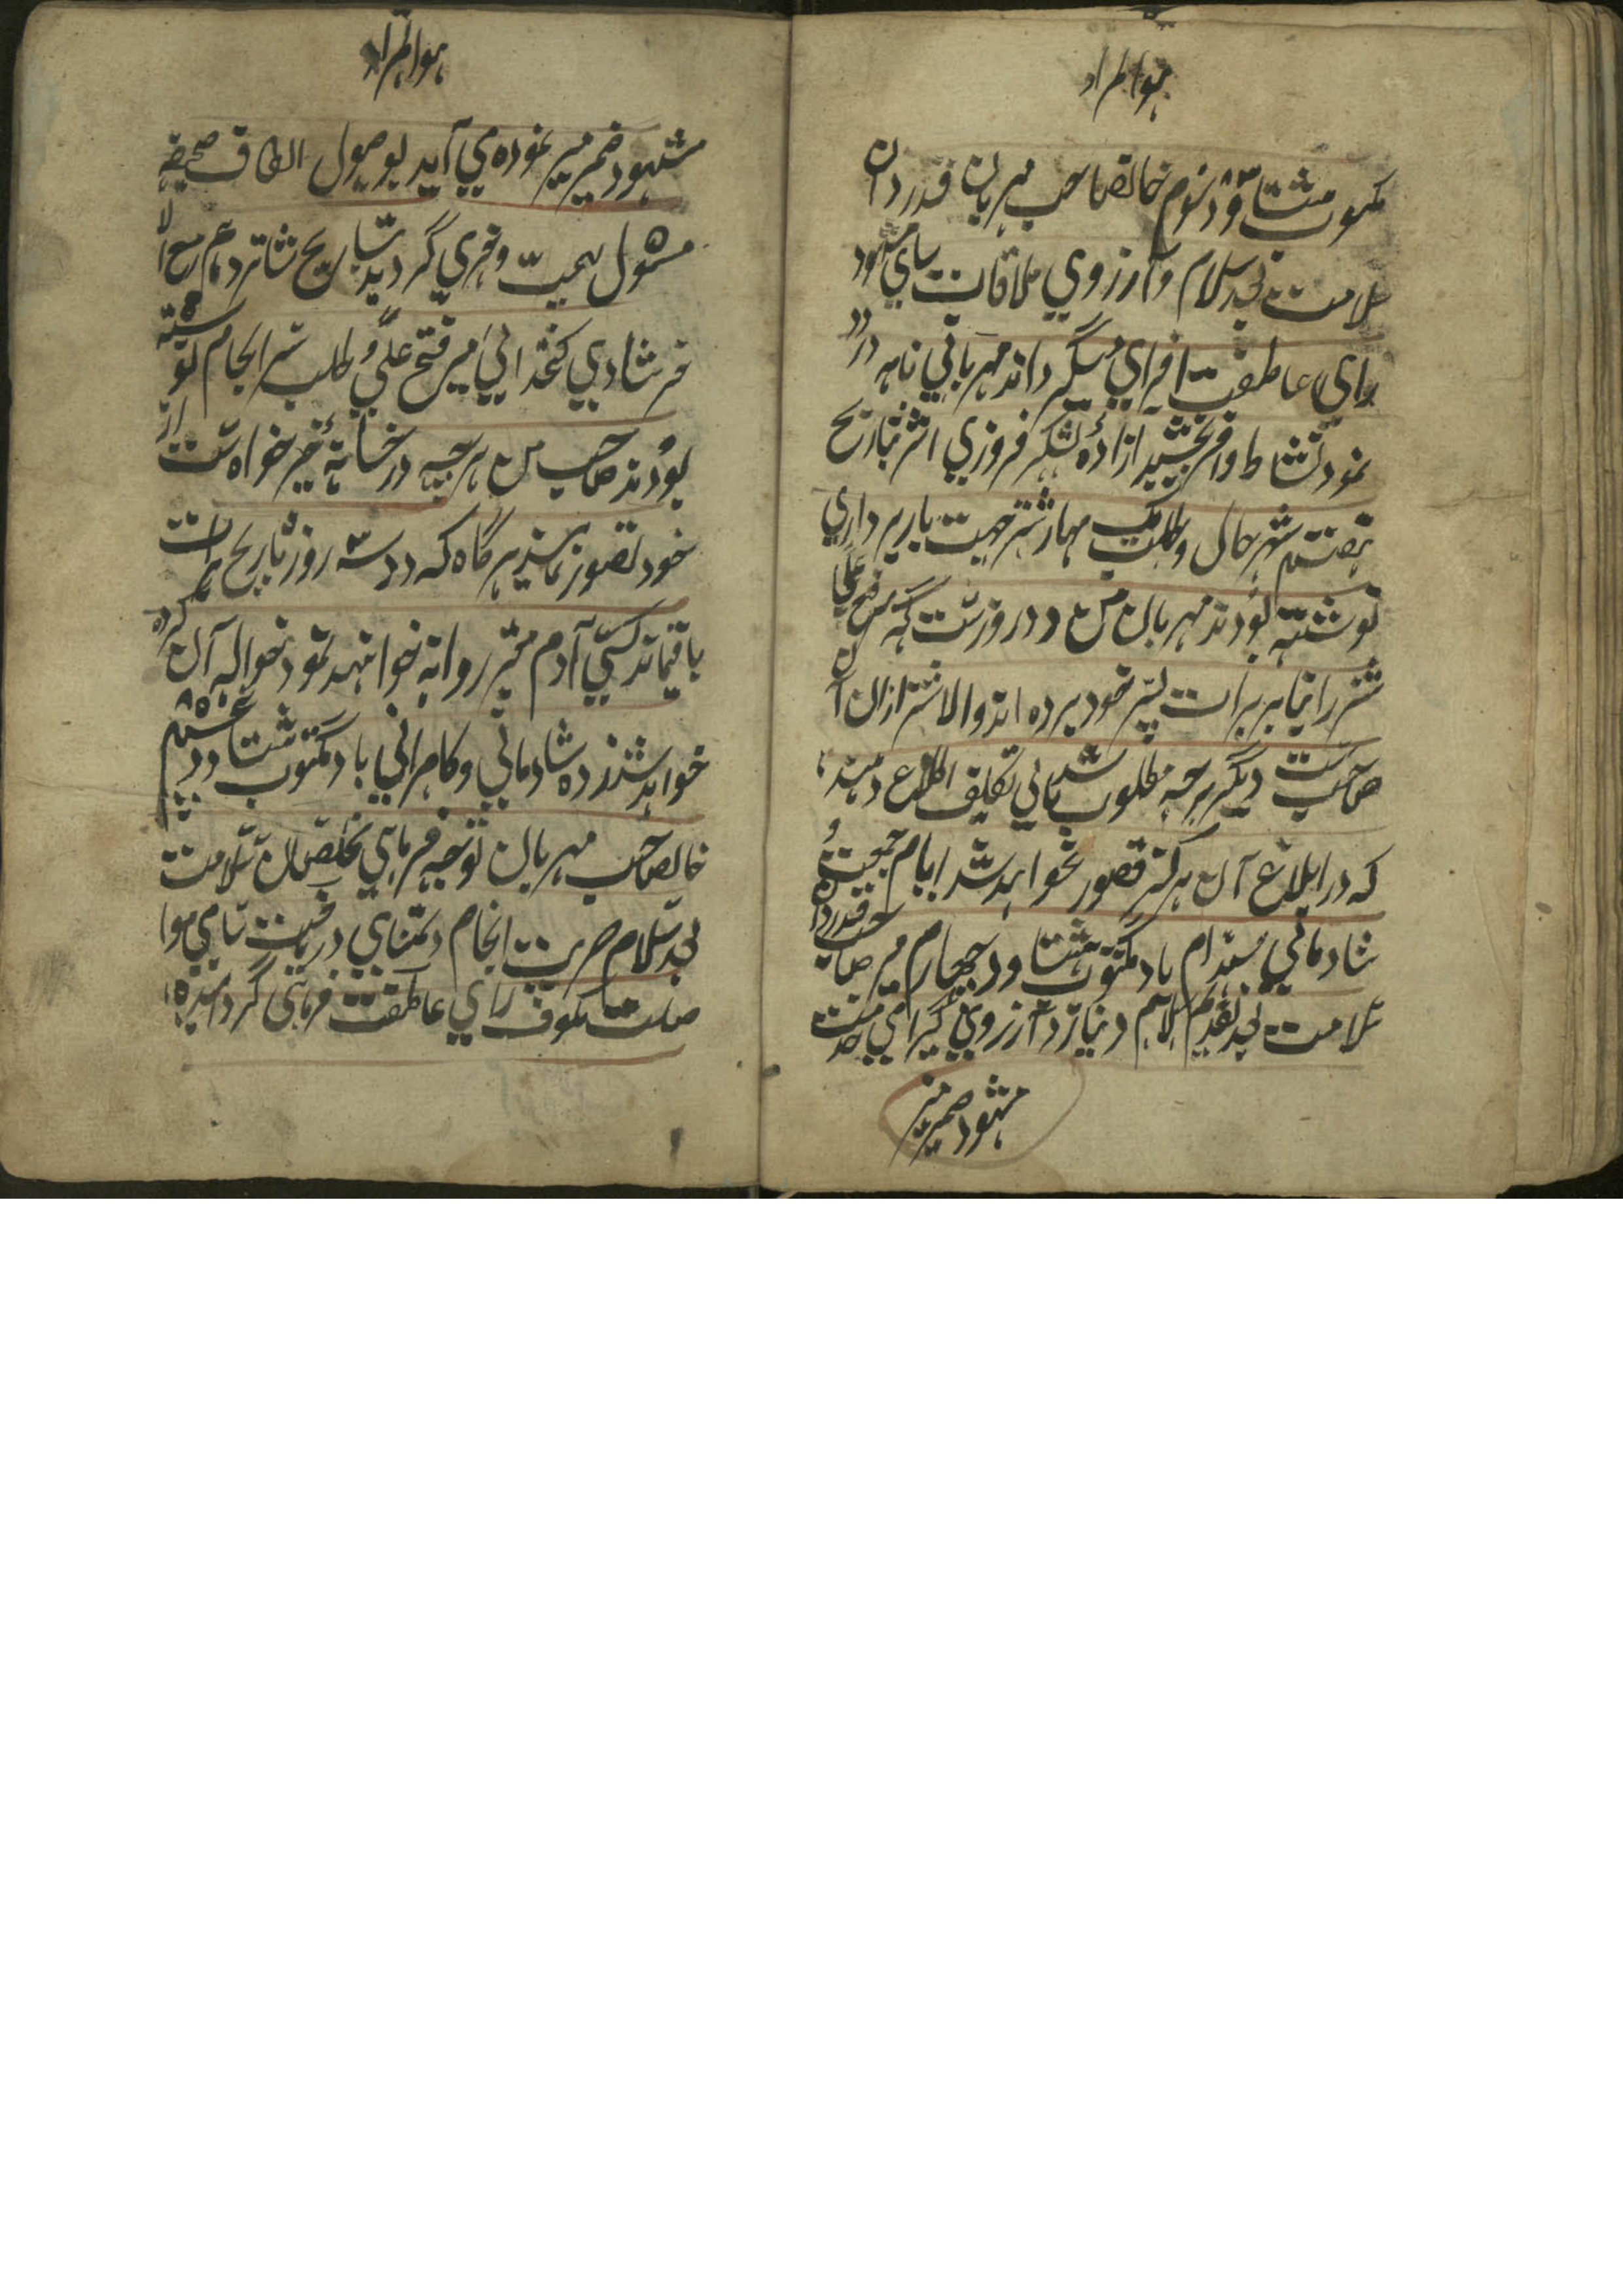 هوالمراد
مکتوب هشتاد و سوم خانصاحب مهربان قدردان
سلامت بعد سلام و آرزوی ملاقات سامی مشهود
رای عاطفت افزای میگرداند مهربانی نامه درود
نمود نشاط وافر بخشید ازاده لشکر فروزی اثر بتاریخ
هفتم شهر حال و طلب یک مهار شتر جهت باربرداری
نوشته بودند مهربان من دو روزست که میر فتح علی
شتر را بنابر برات پسر خود برده اند والا شتر ازان آن
صاحب ست دیگر هرچه مطلوب باشد بی تکلیف اطلاع دهند
که در ابلاغ آن هرگز قصور نخواهد شد ایام جمعیت و
شادمانی مستدام باد مکتوب هشتاد و چهارم میر صاحب قدردان
سلامت بعد تقدیم سلام و نیاز و آرزوی گرامی خدمت
مشهود ضمیر منیر
هوالمراد
مشهود ضمیر منیر نموده می آید بوصول الطاف صحیفه
مشمول بهجت و خرمی گردید بتاریخ شانزدهم ربیع الا
خر شادی کتخدائی میر فتح علی و طلب سرانجام نوشته
بودند صاحب من هرچه در خانه خیرخواه ست از
خود تصور نمایند هرگاه که دو سه روز بتاریخ برات
باقیماند کسی آدم معتبر روانه خواهند نمود حواله آن کرده
خواهد شد زده شادمانی و کامرانی باد مکتوب هشتاد و پنجم
خانصاحب مهربان توجه فرمای مخلصان سلامت
بعد سلام مسرت انجام و تمنای دریافت سامی موا
صلت مکشوف رای عاطفت فرمای گردانیده